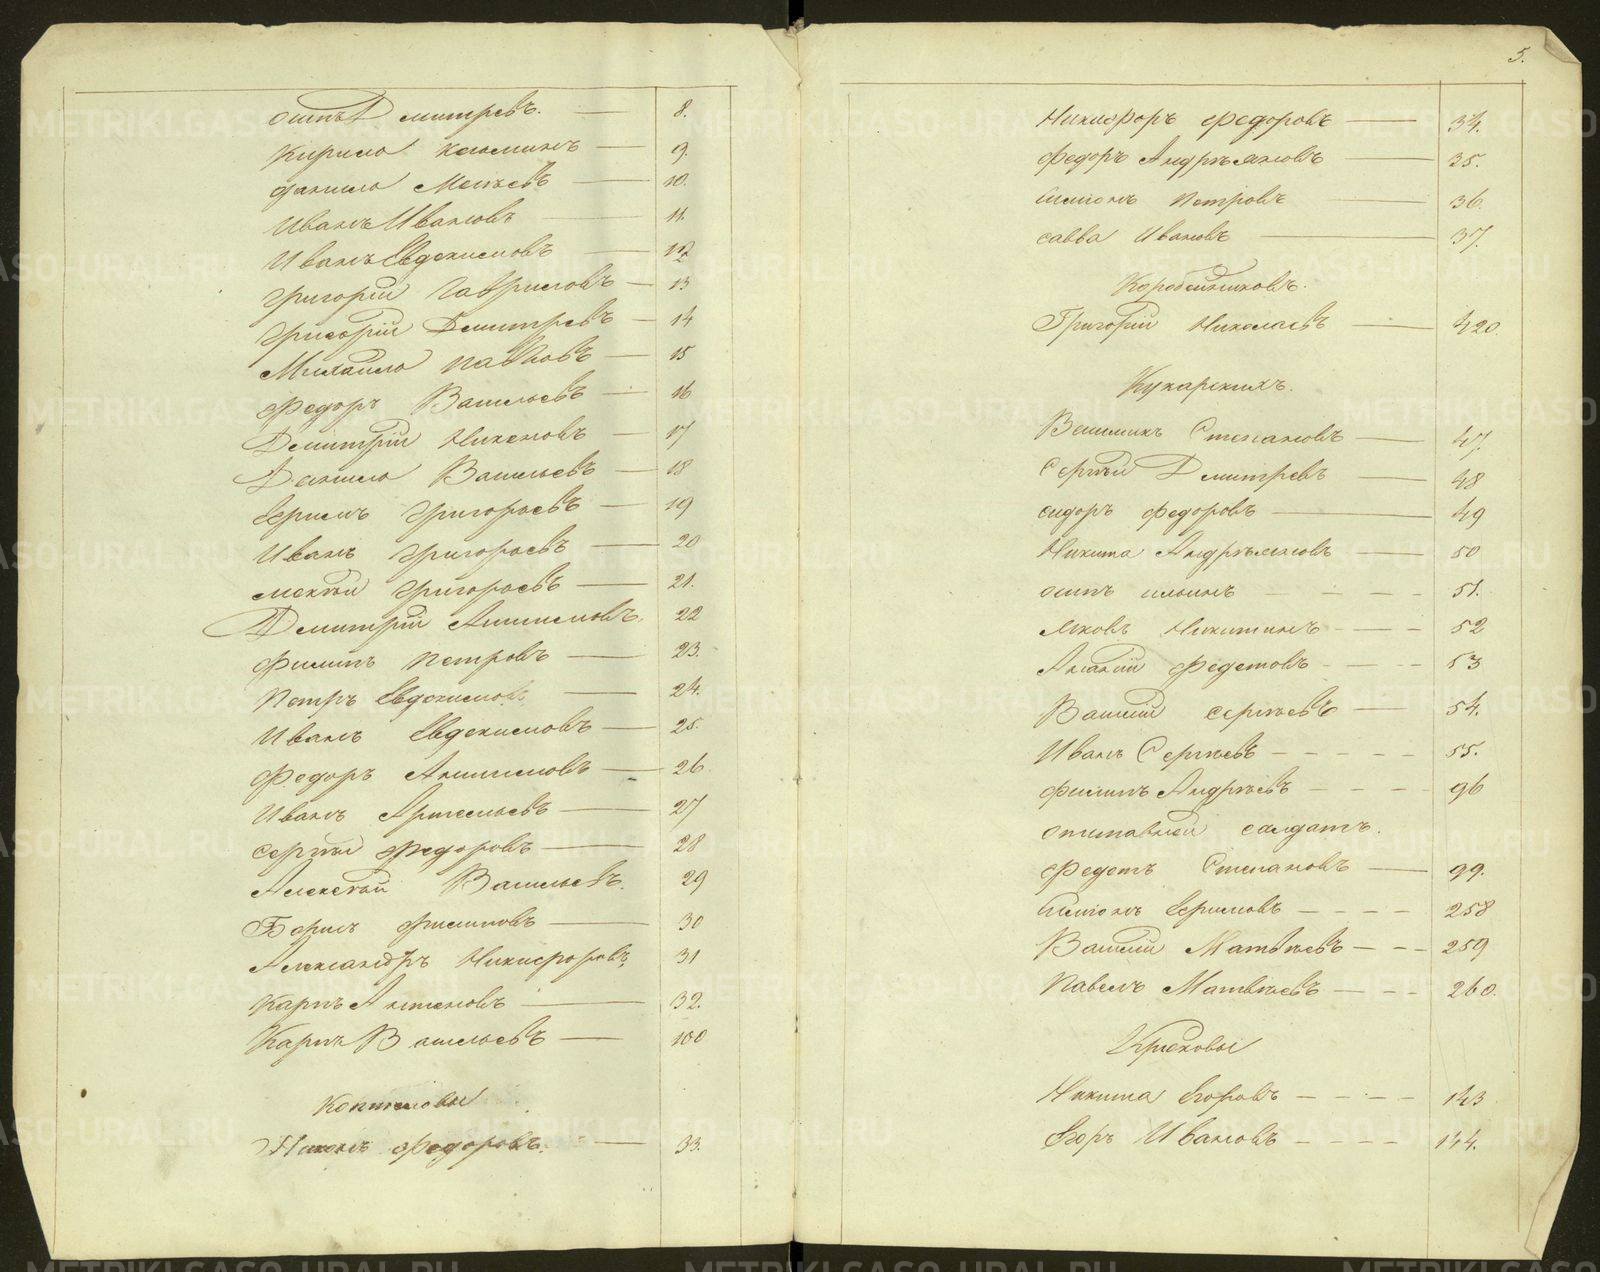 Осипъ Дмитревъ. — 8.
Кирило Козминъ — 9.
Данило Мосѣевъ — 10.
Иванъ Ивановъ — 11.
Иванъ Евдокимовъ — 12
Григорій Гавриловъ — 13
Григорій Дмитревъ — 14
Михайло Павловъ — 15
Федоръ Васильевъ — 16
Дмитрій Никоновъ — 17
Данило Васильевъ — 18
Ефимъ Григорьевъ — 19
Иванъ Григорьевъ — 20
Григорьевъ — 21.
Дмитрій Анисимовъ. 22
Филипъ Петровъ — 23.
Петръ Евдокимовъ — 24.
Иванъ Евдокимовъ — 25.
Федоръ Анисимовъ — 26
Иванъ Артемьевъ — 27
Сергѣй Федоровъ — 28
Алексѣй Васильевъ. 29
Борисъ Филиповъ — 30
Александръ Никифоровъ, 31
Карпъ Антоновъ — 32.
Карпъ Васильевъ — 100
Коптеловы
Никонъ Федоровъ. — 33.
5.
Никифоръ Федоровъ — 34.
Федоръ Андрѣяновъ — 35.
Симіонъ Петровъ — 36.
Савва Ивановъ — 37.
Коробейниковъ.
Григорій Николаевъ — 420.
Кукарскихъ.
Степановъ — 47.
Сергѣй Дмитревъ — 48
Сидоръ Федоровъ — 49
Никита Андрѣяновъ — 50
Осипъ Ильинъ — — — — 51.
Яковъ Никитинъ — — — 52
Ананій Федотовъ — — — 53
Василій Сергѣевъ — — 54.
Иванъ Сергѣевъ — — — — 55.
Филипъ Андрѣевъ — — — — 96
отставной салдатъ.
Федотъ Степановъ — 99.
Симіонъ Ефимовъ — — — — 258
Василій Матвѣевъ — — — 259
Павелъ Матвѣевъ — — — 260.
Крюковы
Никита Егоровъ — — — — 143
Егоръ Ивановъ — — — — 144.
METRIKI.GASO-URAL.RU